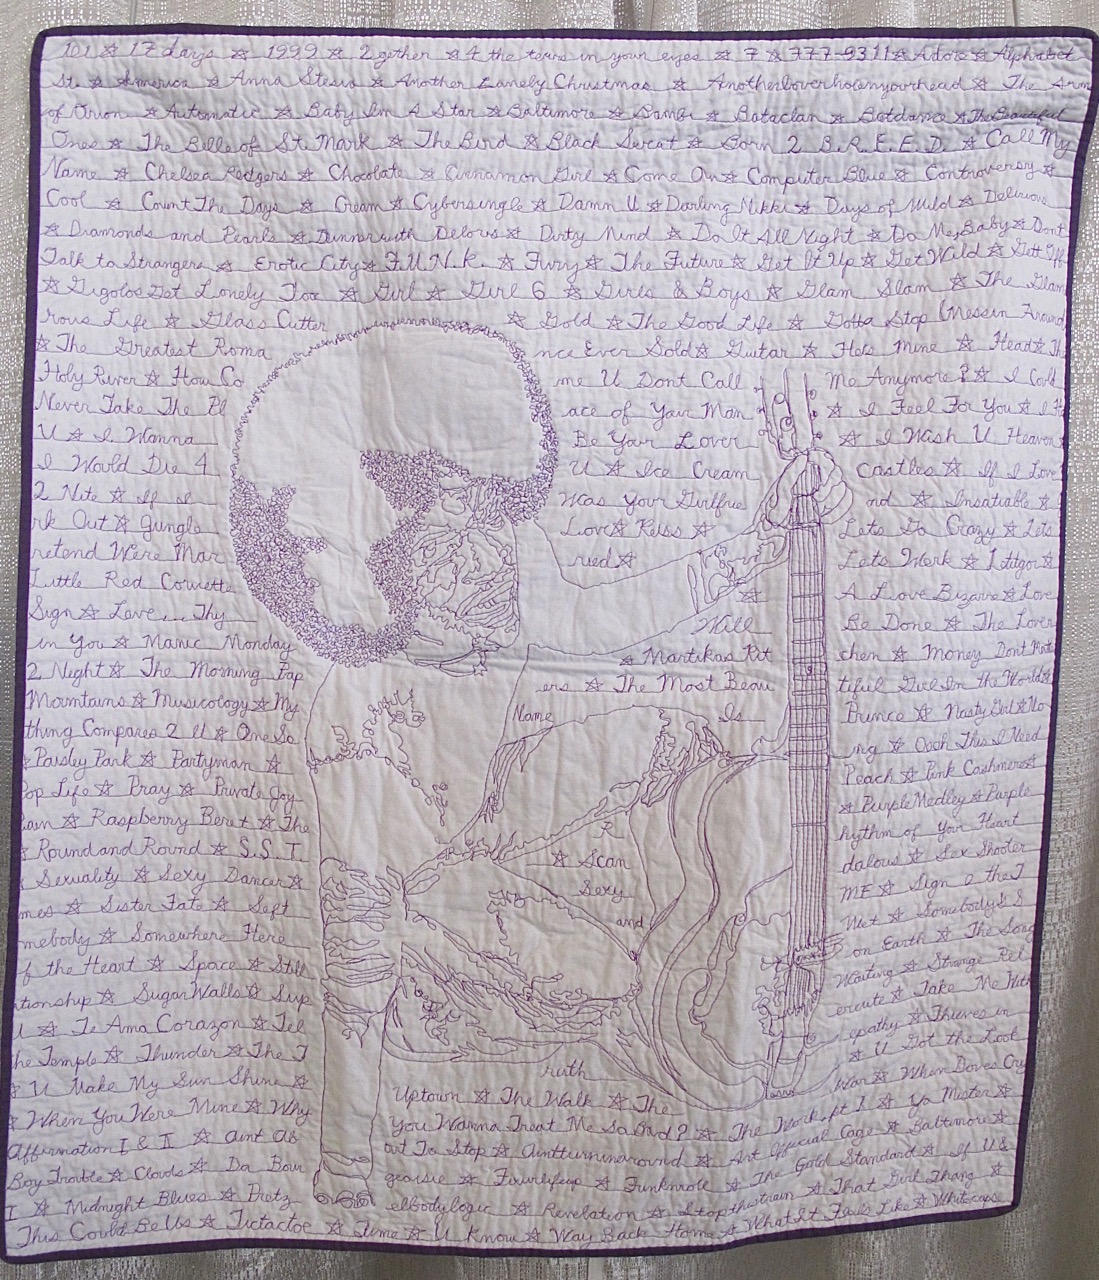 101 ☆ 17 days ☆ 1999 ☆ 2gether ☆ 4 the tears in your eyes ☆ 7 ☆ 777-9311 ☆ Adore ☆ Alphabet
St. ☆ America ☆ Anna Stesia ☆ Another Lonely Christmas ☆ Anotherloverholenyourhead ☆ The Arm
of Orion ☆ Automatic ☆ Baby Im A Star ☆ Baltimore ☆ Bambi ☆ Bataclan ☆ Batdance ☆ The Beautiful
Ones ☆ The Belle of St. Mark ☆ The Bird ☆ Black Sweat ☆ Born 2 B.R.E.E.D. ☆ Call My
Name ☆ Chelsea Rodgers ☆ Chocolate ☆ Cinnamon Girl ☆ Come On ☆ Computer Blue ☆ Controversy ☆
Cool ☆ Count The Days ☆ Cream ☆ Cybersingle ☆ Damn U ☆ Darling Nikki ☆ Days of Wild ☆ Delirious
☆ Diamonds and Pearls ☆ Dinner with Delores ☆ Dirty Mind ☆ Do It All Night ☆ Do Me, Baby ☆ Dont
Talk to Strangers ☆ Erotic City ☆ F.U.N.K. ☆ Fury ☆ The Future ☆ Get It Up ☆ Get Wild ☆ Gett Off
☆ Gigolos Get Lonely Too ☆ Girl ☆ Girl 6 ☆ Girls & Boys ☆ Glam Slam ☆ The Glam
rous Life ☆ Glass Cutter ☆ Gold ☆ The Good Life ☆ Gotta Stop (Messin Around
☆ The Greatest Roma nce Ever Sold ☆ Guitar ☆ Hots Mine ☆ Head ☆ Th
Holy River ☆ How Co me U Dont Call Me Anymore? ☆ I Could
Never Take The Pl ace of Your Man ☆ I Feel For You ☆ I H
U ☆ I Wanna Be Your Lover ☆ I Wish U Heaven
I Would Die 4 U ☆ Ice Cream Castles ☆ If I Love
2 Nite ☆ If I Was Your Girlfrie nd ☆ Insatiable ☆
rk Out ☆ Jungle Love ☆ Kiss ☆ Lets Go Crazy ☆ Lets
retend Were Mar ried ☆ Lets Work ☆ Letitgo ☆
Little Red Corvette ☆ A Love Bizarre ☆ Love
Sign ☆ Love... Thy Will Be Done ☆ The Lover
in You ☆ Manic Monday ☆ Martikas Kit chen ☆ Money Dont Matt
2 Night ☆ The Morning Pap ers ☆ The Most Beau tiful Girl In the World ☆
Mountains ☆ Musicology ☆ My Name Is Prince ☆ Nasty Girl ☆ No
thing Compares 2 U ☆ One So ng ☆ Oooh This I Need
☆ Paisley Park ☆ Partyman ☆ Peach ☆ Pink Cashmere ☆
Pop Life ☆ Pray ☆ Private Joy ☆ Purple Medley ☆ Purple
ain ☆ Raspberry Beret ☆ The R hythm of Your Heart
☆ Round and Round ☆ S.S.T. ☆ Scan dalous ☆ Sex Shooter
☆ Sexuality ☆ Sexy Dancer ☆ Sexy MF ☆ Sign o the T
mes ☆ Sister Fate ☆ Soft and Wet ☆ Somebodys S
mebody ☆ Somewhere Here on Earth ☆ The Song
f the Heart ☆ Space ☆ Still Waiting ☆ Strange Rel
ationship ☆ Sugar Walls ☆ Sup ercute ☆ Take Me With
U ☆ Te Ama Corazon ☆ Tel epathy ☆ Thieves in
he Temple ☆ Thunder ☆ The T ruth ☆ U Got the Look
☆ U Make My Sun Shine ☆ Uptown ☆ The Walk ☆ The War ☆ When Doves Cry
☆ When You Were Mine ☆ Why You Wanna Treat Me So Bad? ☆ The Work pt 1 ☆ Ya Mister ☆
Affirmation I & II ☆ aint ab out To Stop ☆ Aintturninaround ☆ Art Official Cage ☆ Baltimore ☆
Boy Trouble ☆ Clouds ☆ Da Bour geoisie ☆ Fixurlifeup ☆ Funknroll ☆ The Gold Standard ☆ If U &
I ☆ Midnight Blues ☆ Pretz elbodylogic ☆ Revelation ☆ Stopthistrain ☆ That Girl Thang ☆
This Could Be Us ☆ Tictactoe ☆ Time ☆ U Know ☆ Way Back Home ☆ What It Feels Like ☆ Whitecaps